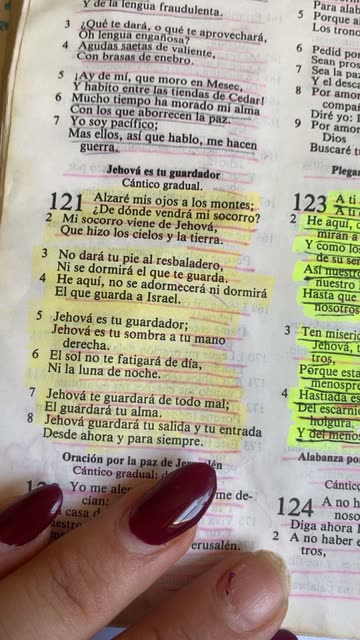 Y de la lengua fraudulenta.
3 ¿Qué te dará, o qué te aprovechará,
Oh lengua engañosa?
4 Agudas saetas de valiente,
Con brasas de enebro.
5 ¡Ay de mí, que moro en Mesec,
Y habito entre las tiendas de Cedar!
6 Mucho tiempo ha morado mi alma
Con los que aborrecen la paz.
7 Yo soy pacífico;
Mas ellos, así que hablo, me hacen
guerra.
Jehová es tu guardador
Cántico gradual.
121 Alzaré mis ojos a los montes;
¿De dónde vendrá mi socorro?
2 Mi socorro viene de Jehová,
Que hizo los cielos y la tierra.
3 No dará tu pie al resbaladero,
Ni se dormirá el que te guarda.
4 He aquí, no se adormecerá ni dormirá
El que guarda a Israel.
5 Jehová es tu guardador;
Jehová es tu sombra a tu mano
derecha.
6 El sol no te fatigará de día,
Ni la luna de noche.
7 Jehová te guardará de todo mal;
El guardará tu alma.
8 Jehová guardará tu salida y tu entrada
Desde ahora y para siempre.
Oración por la paz de
Cántico gradual;
Yo me
me de-
cían:
casa d
erusalén.
Para al
5 Porque a
Los tron
6 Pedid por
Sean pros
7 Sea la pa
Y el desca
8 Por amor
compa
Diré yo:
9 Por amor
Dios
Buscaré t
Plegar
123 A ti
A ti
2 He aquí,
miran a
Y como lo
de su se
Así nuest
nuestro
Hasta que
nosotros
3 Ten miseric
Jehová, t
tros,
Porque esta
menospr
4 Hastiada es
Del escarni
holgura,
Y del menos
Alabanza po
Cántic
124 A no
noso
Diga ahora I
2 A no haber e
tros,